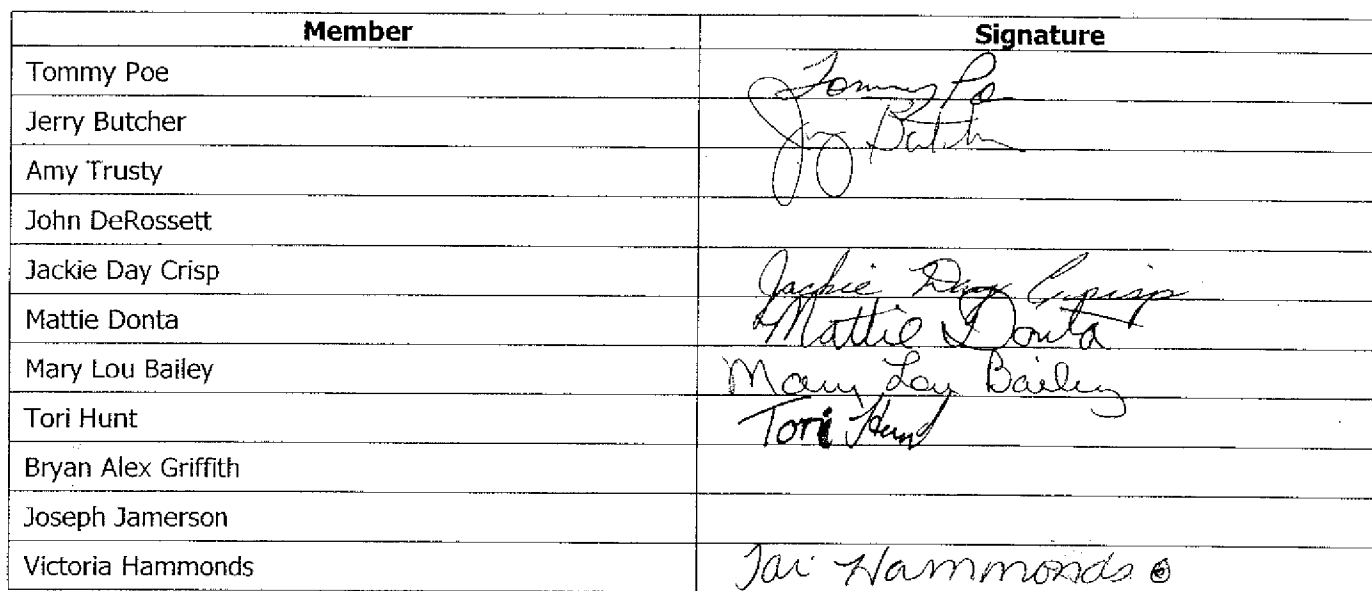 Member Signature
Tommy Poe Tommy Po
Jerry Butcher Jerry Butcher
Amy Trusty
John DeRossett
Jackie Day Crisp Jackie Day Crisp
Mattie Donta Mattie Donta
Mary Lou Bailey Mary Lou Bailey
Tori Hunt Tori Hunt
Bryan Alex Griffith
Joseph Jamerson
Victoria Hammonds Hammonds